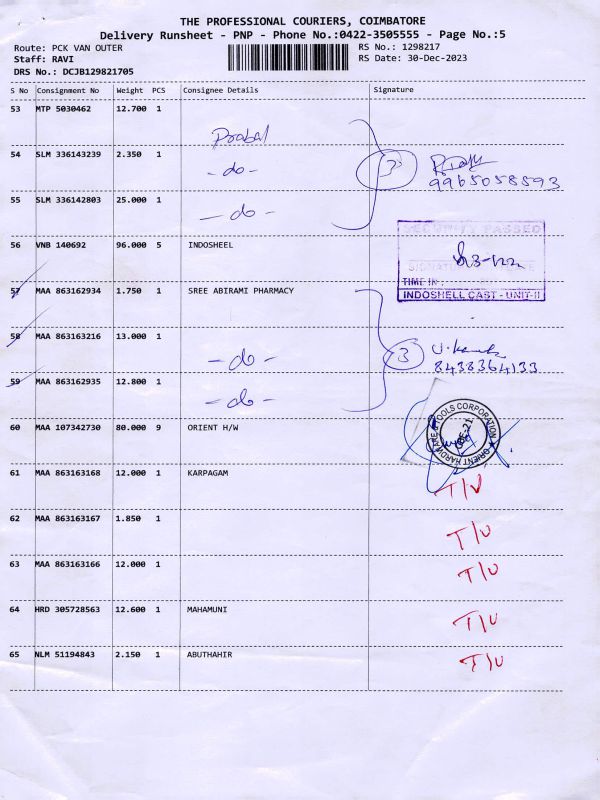 THE PROFESSIONAL COURIERS, COIMBATORE
Delivery Runsheet - PNP - Phone No.:0422-3505555 - Page No.:5
Route: PCK VAN OUTER
RS No.: 1298217
Staff: RAVI
RS Date: 30-Dec-2023
DRS No.: DCJB129821705
S No Consignment No Weight PCS Consignee Details Signature
53 MTP 5030462 12.700 1
Prabal
54 SLM 336143239 2.350 1
-do-
3
9965058593
55 SLM 336142803 25.000 1
-do-
56 VNB 140692 96.000 5 INDOSHEEL
SECURITY PASSED
SIGNATURE
TIME IN :
INDOSHELL CAST - UNIT-II
57 MAA 863162934 1.750 1 SREE ABIRAMI PHARMACY
58 MAA 863163216 13.000 1
-do-
3
8438364133
59 MAA 863162935 12.800 1
-do-
60 MAA 107342730 80.000 9 ORIENT H/W
ORIENT HARDWARE & TOOLS CORPORATION
CBE-21
61 MAA 863163168 12.000 1 KARPAGAM
T/U
62 MAA 863163167 1.850 1
T/U
63 MAA 863163166 12.000 1
T/U
64 HRD 305728563 12.600 1 MAHAMUNI
T/U
65 NLM 51194843 2.150 1 ABUTHAHIR
T/U